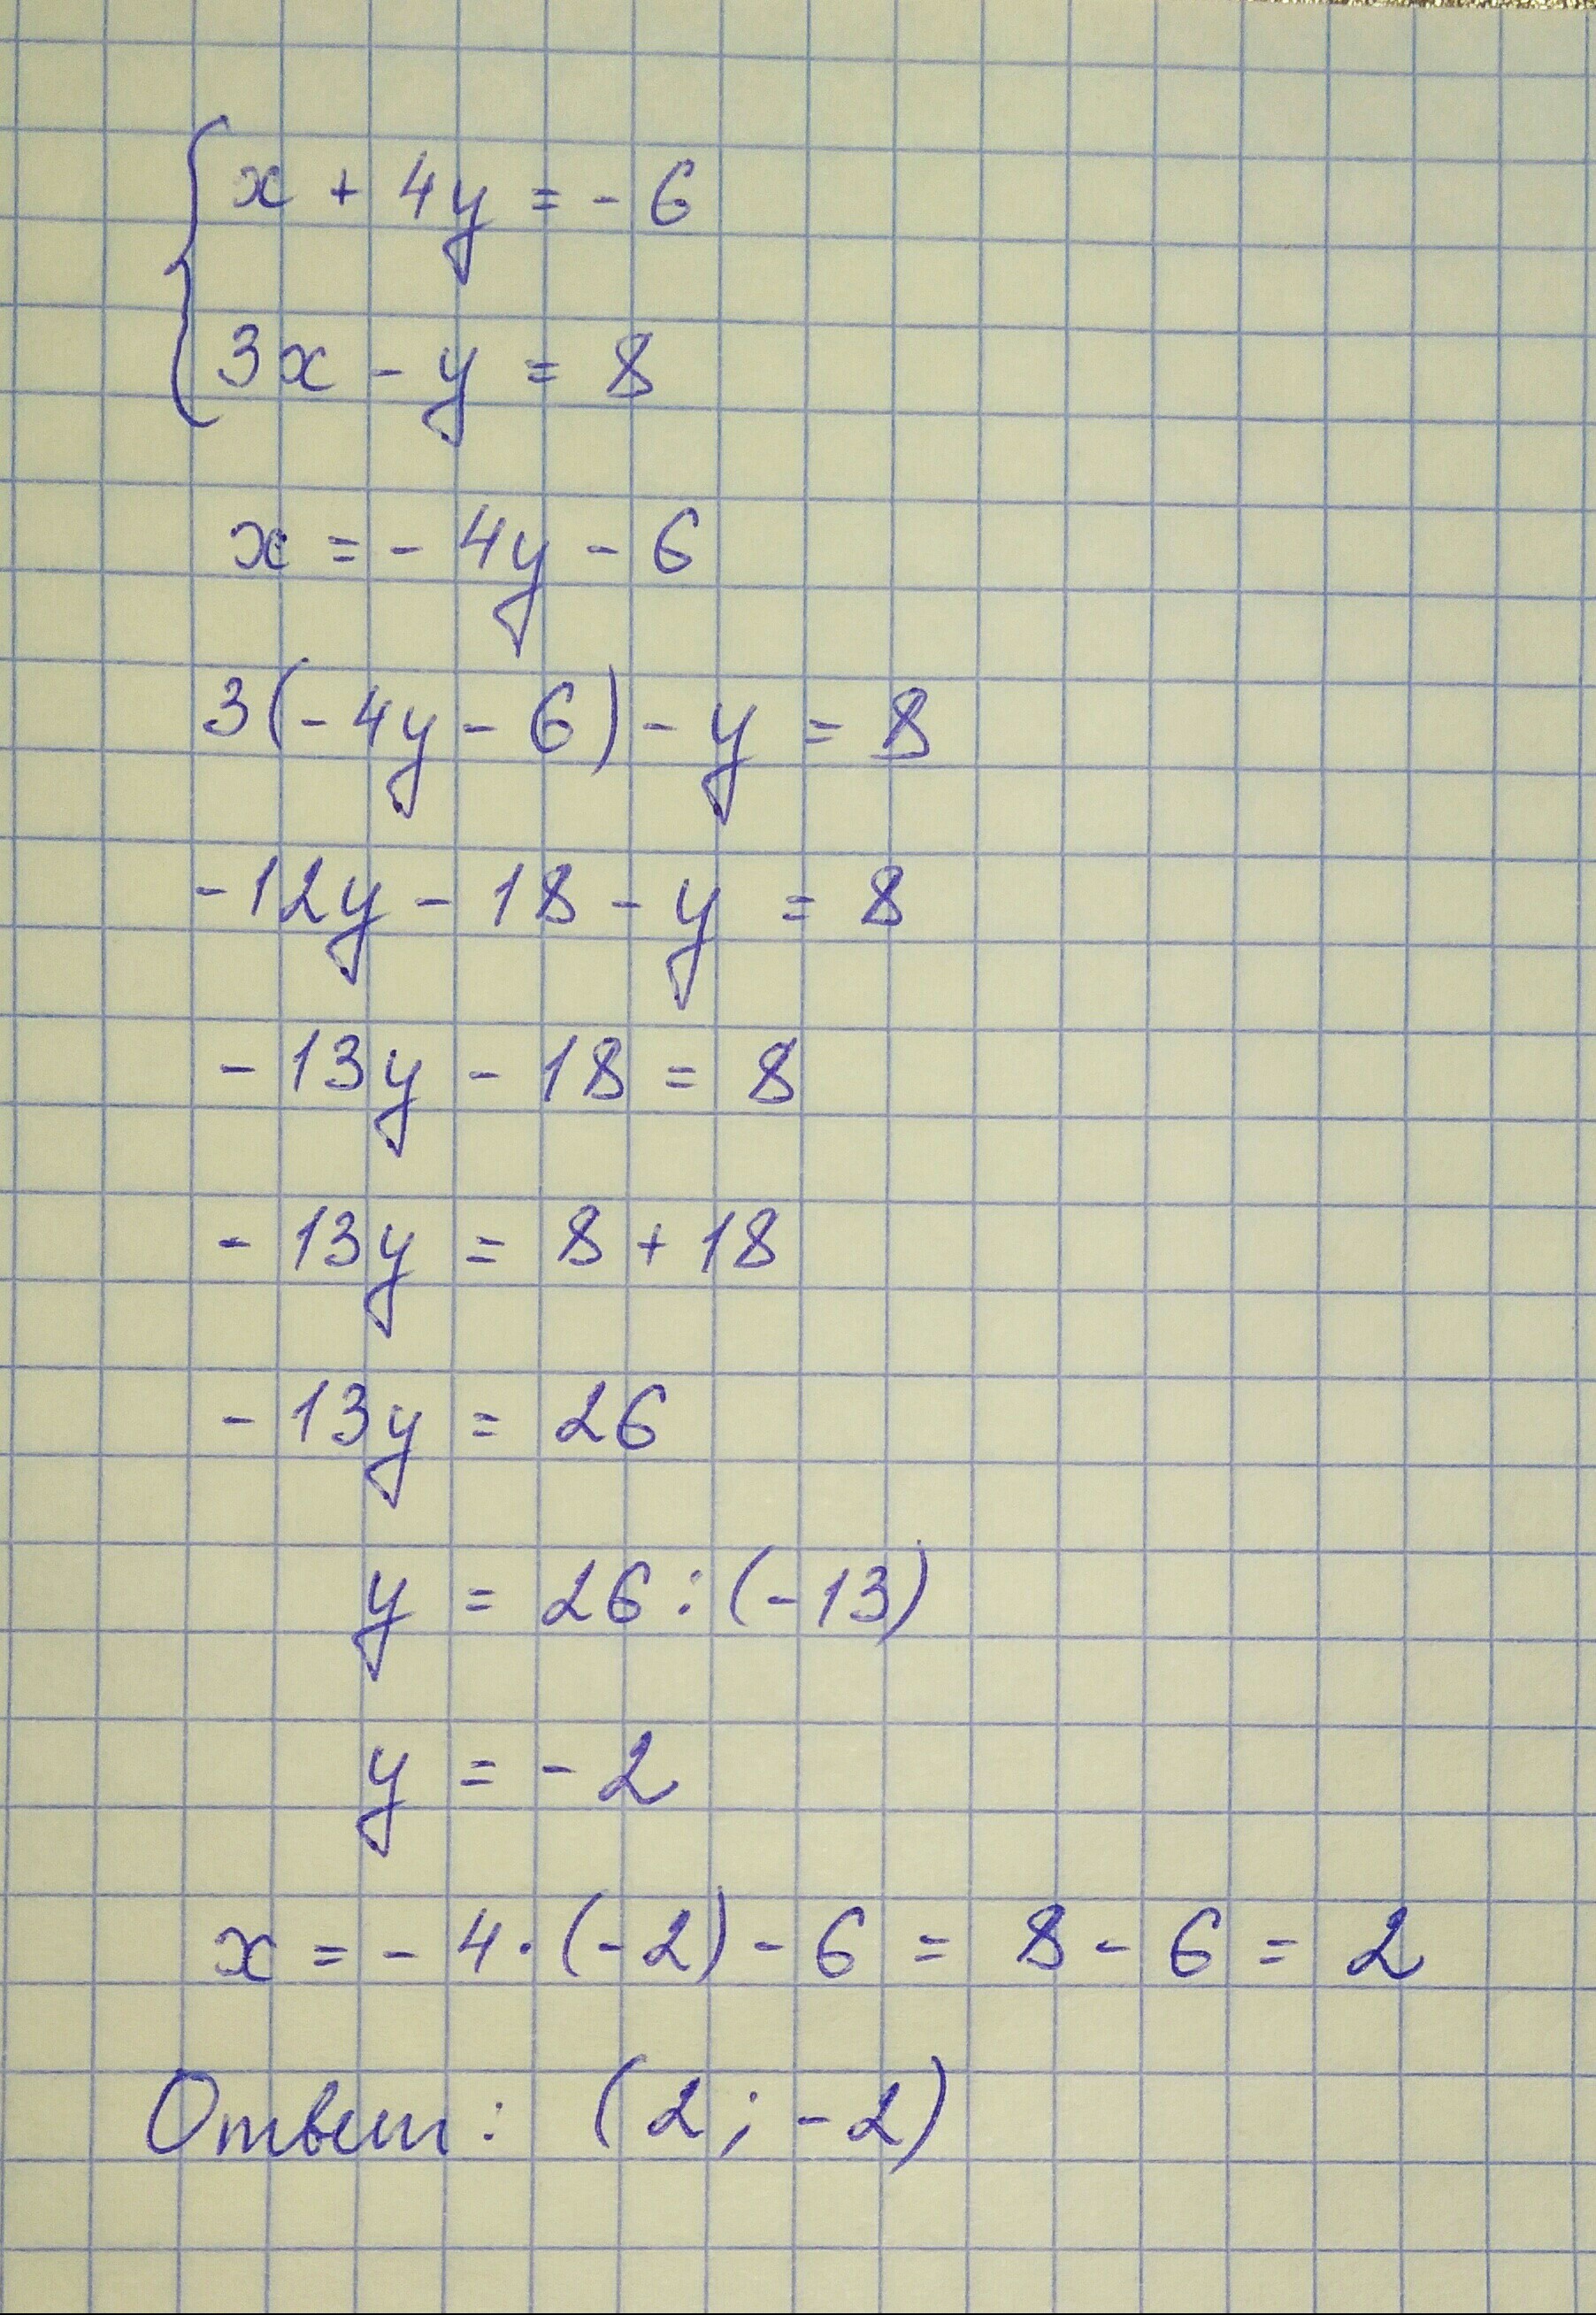 { x + 4y = - 6
3x - y = 8
x = - 4y - 6
3(- 4y - 6) - y = 8
- 12y - 18 - y = 8
- 13y - 18 = 8
- 13y = 8 + 18
- 13y = 26
y = 26 : (- 13)
y = - 2
x = - 4 · (- 2) - 6 = 8 - 6 = 2
Ответ: (2 ; - 2)